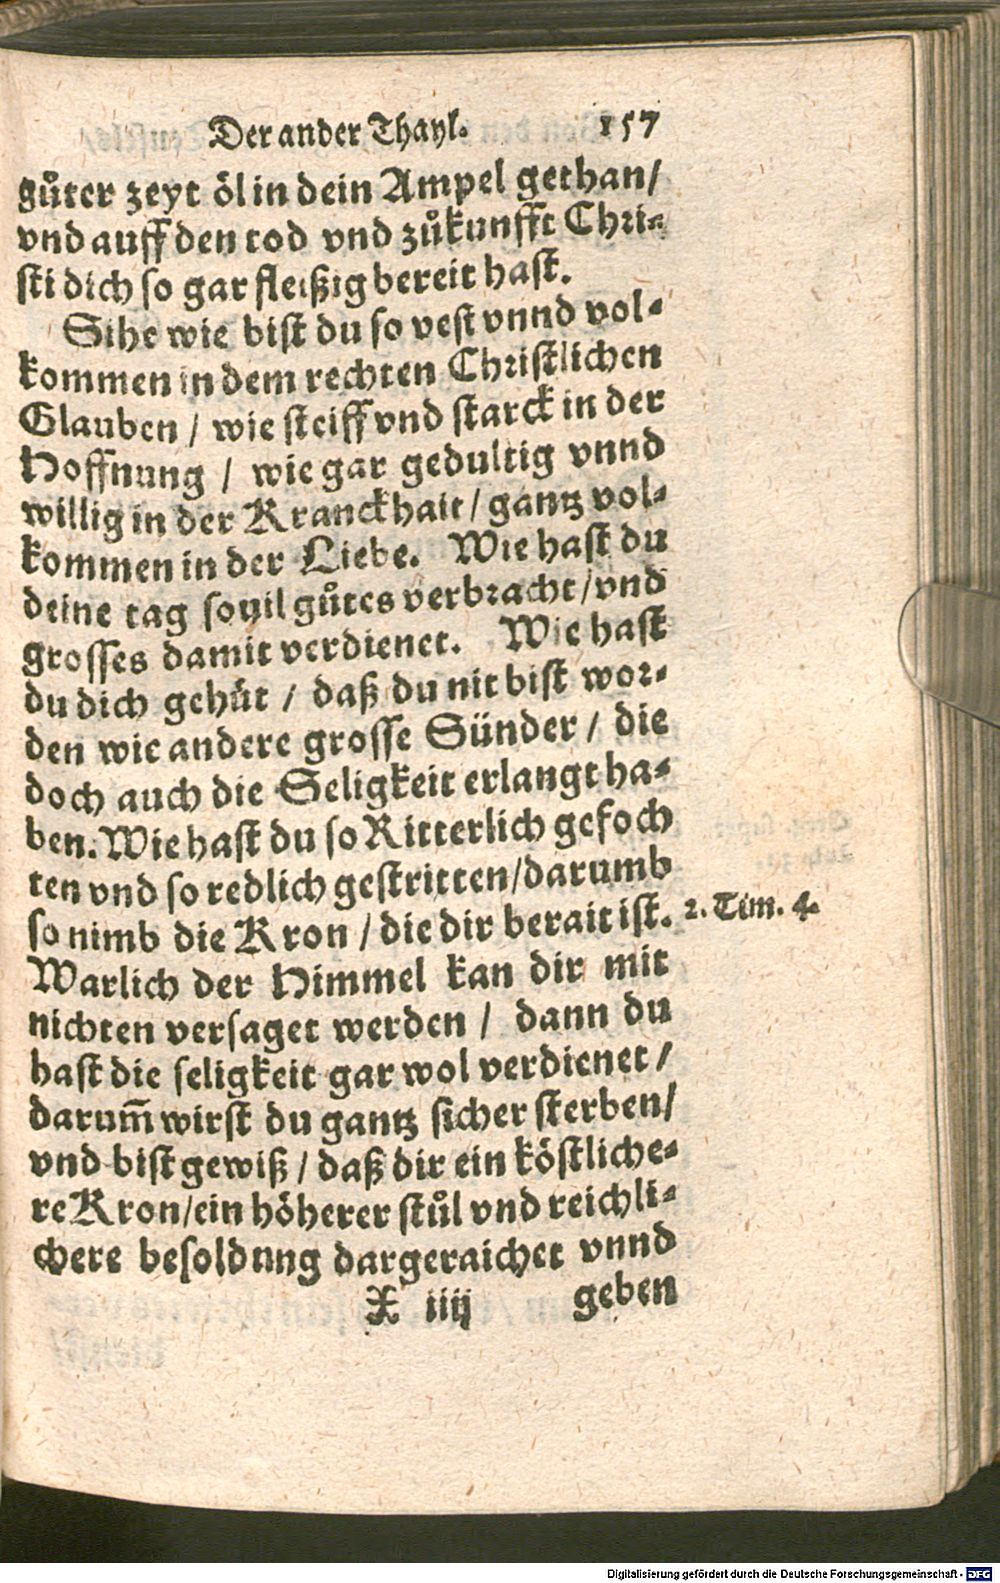 Der ander Thayl. 157
gůter zeyt öl in dein Ampel gethan/
vnd auff den tod vnd zůkunfft Chri-
sti dich so gar fleißig bereit hast.
Sihe wie bist du so vest vnnd vol-
kommen in dem rechten Christlichen
Glauben / wie steiff vnd starck in der
Hoffnung / wie gar gedultig vnnd
willig in der Kranckhait / gantz vol-
kommen in der Liebe. Wie hast du
deine tag souil gůtes verbracht / vnd
grosses damit verdienet. Wie hast
du dich gehüt / daß du nit bist wor-
den wie andere grosse Sünder / die
doch auch die Seligkeit erlangt ha-
ben. Wie hast du so Ritterlich gefoch
ten vnd so redlich gestritten/darumb
so nimb die Kron / die dir berait ist. 2. Tim. 4.
Warlich der Himmel kan dir mit
nichten versaget werden / dann du
hast die seligkeit gar wol verdienet /
darum̃ wirst du gantz sicher sterben/
vnd bist gewiß / daß dir ein köstliche-
re Kron/ein höherer stůl vnd reichli-
chere besoldung dargeraichet vnnd
X iiij geben
Digitalisierung gefördert durch die Deutsche Forschungsgemeinschaft - DFG